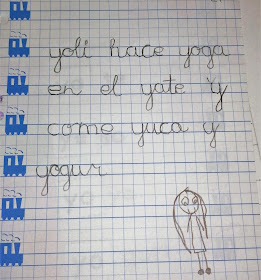 yoli hace yoga
en el yate y
come yuca y
yogur